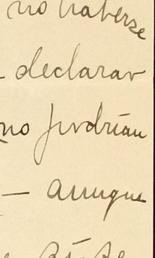 no haberze
declarar
no pudrian
— aunque